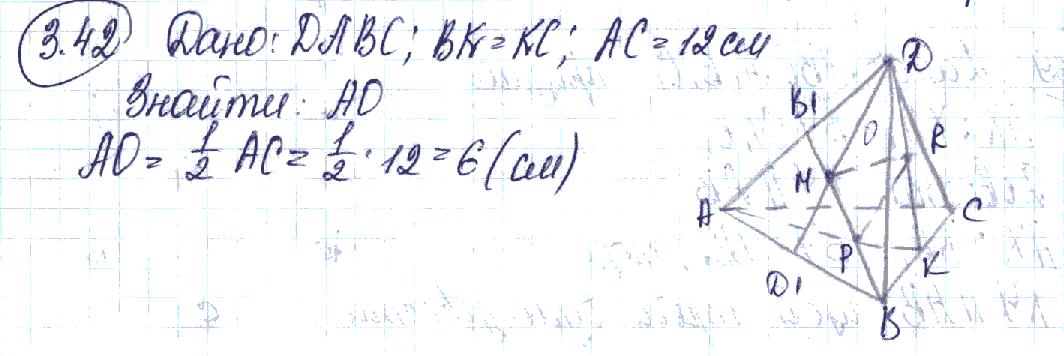 3.42 Дано: DABC; BK = KC; AC = 12 см
Знайти: AO
AO = 1/2 AC = 1/2 · 12 = 6 (см)
D
B1
O
R
M
A
C
P
K
D1
B